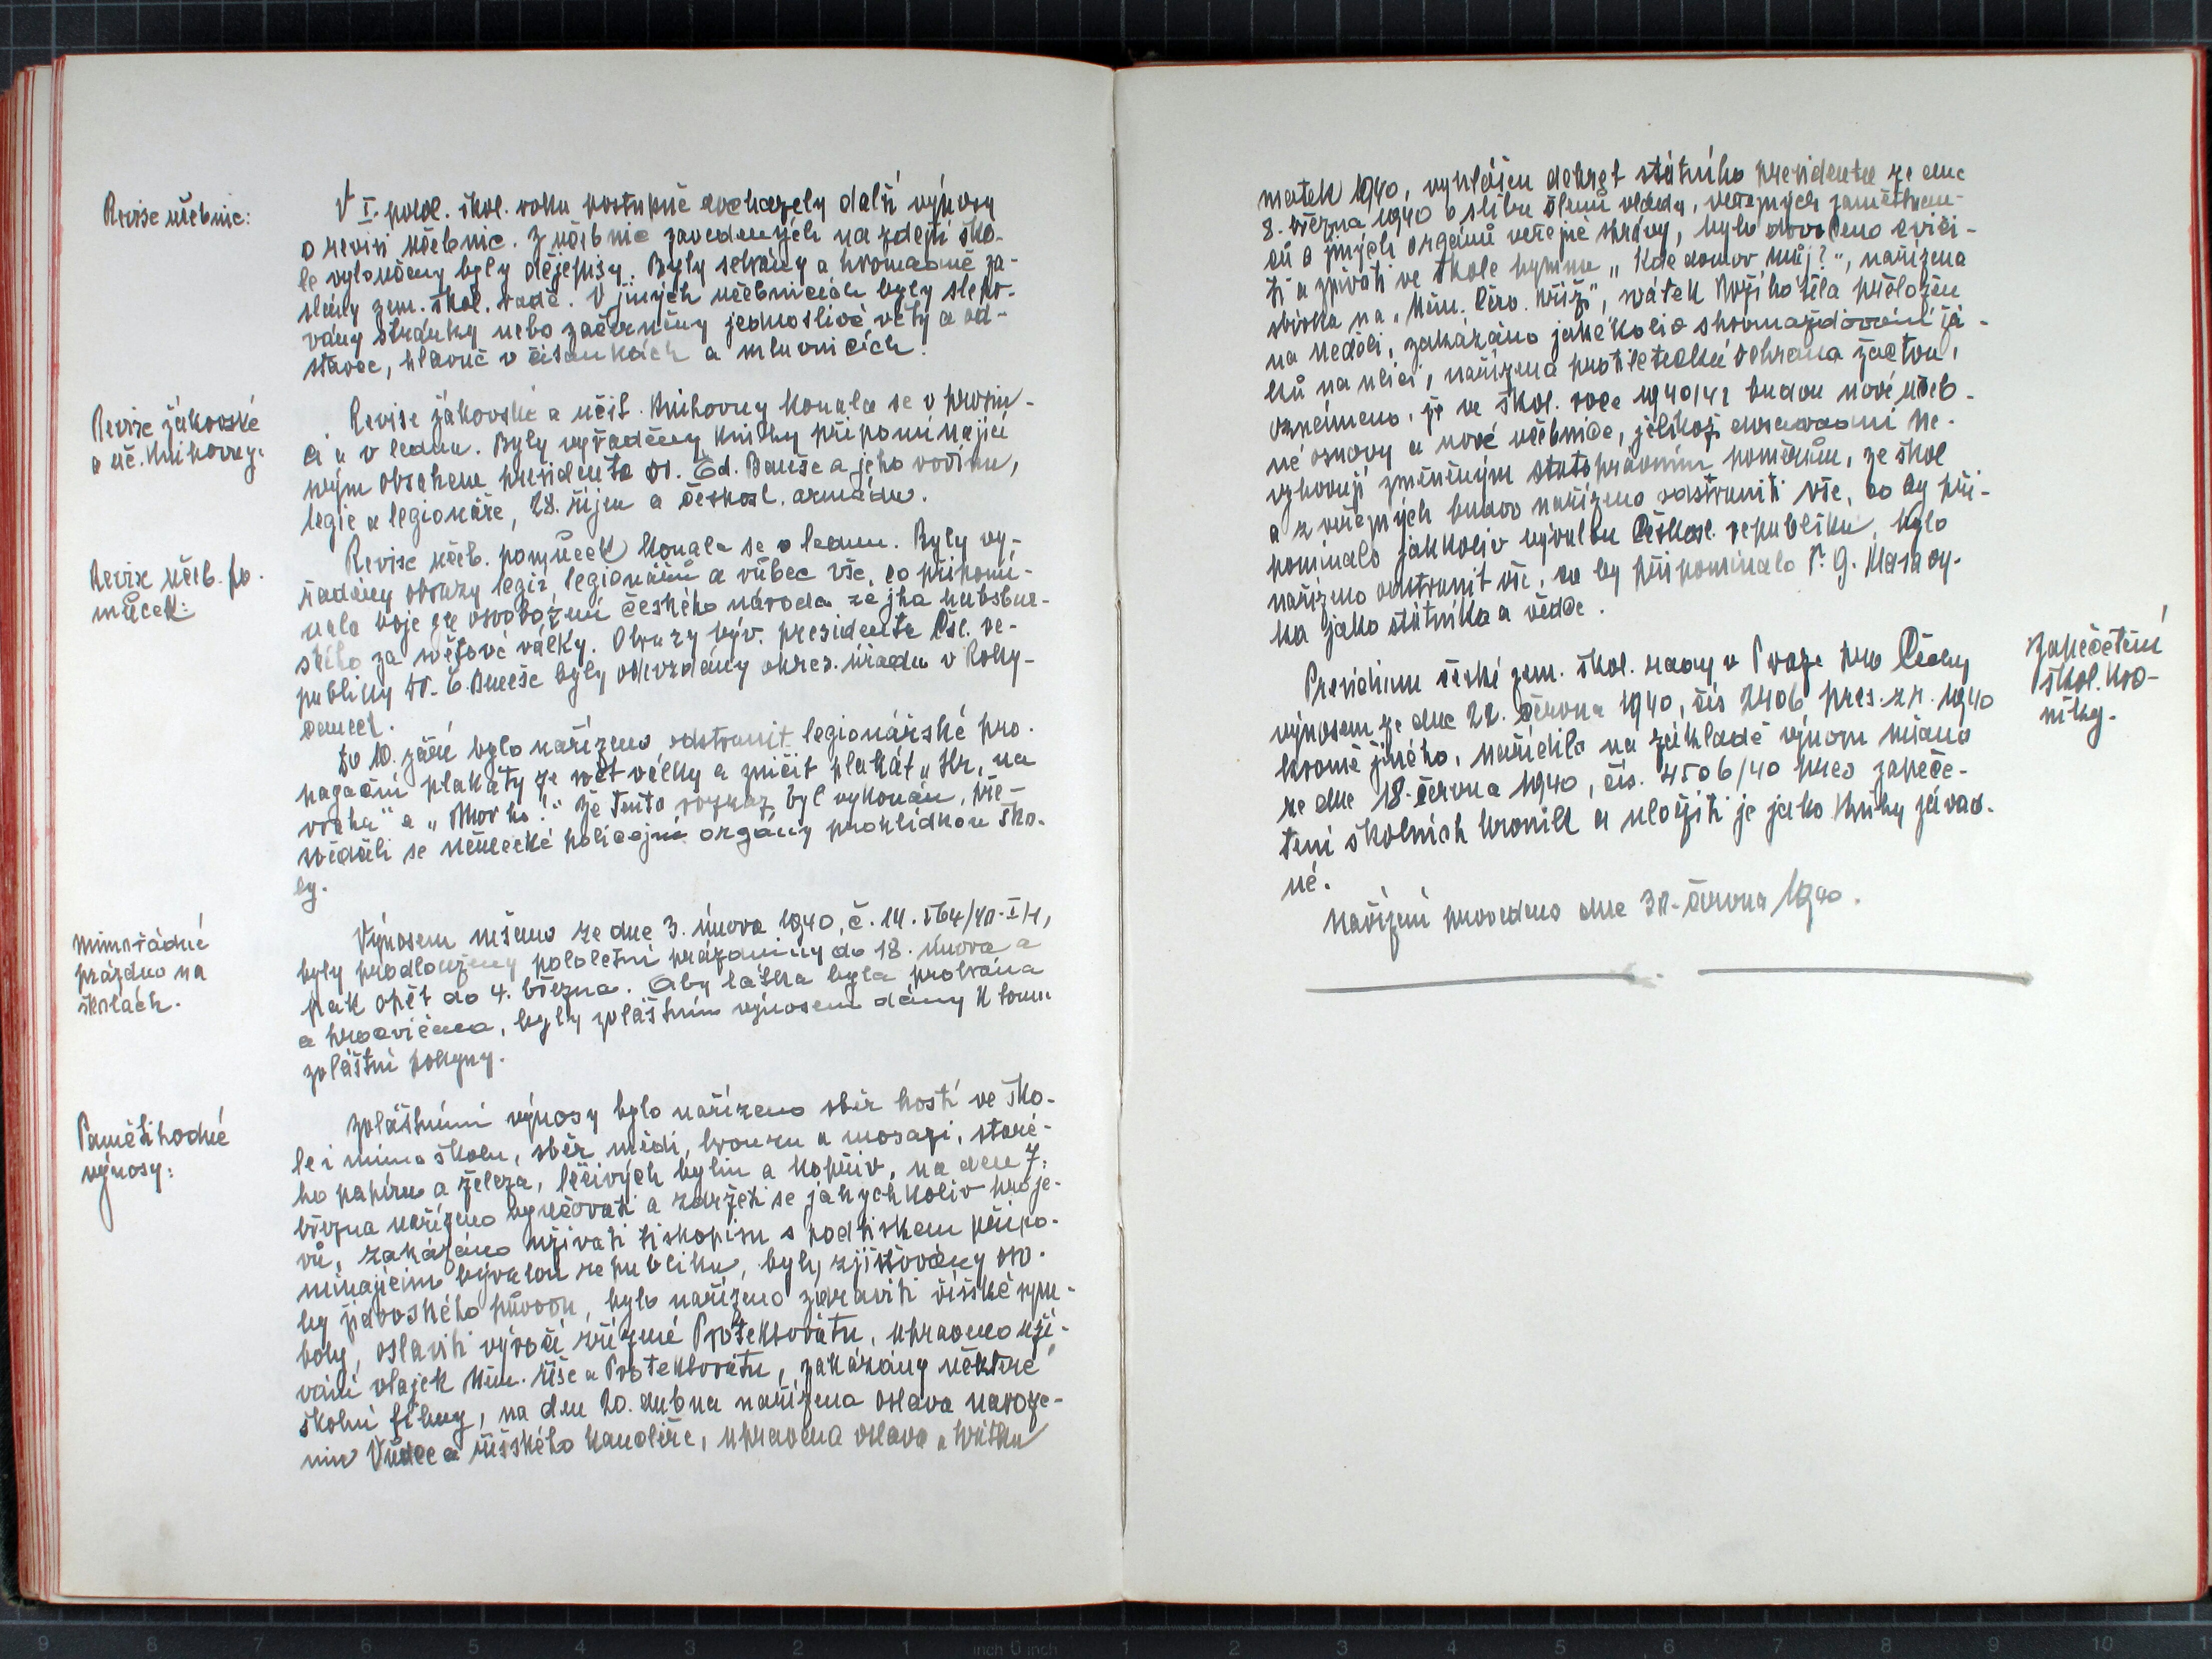 Revise učebnic:
V I. polol. škol. roku postupně docházely další výnosy
o revisi učebnic. Z učebnic zavedených na zdejší ško-
le vyloučeny byly dějepisy. Byly sebrány a hromadně za-
slány zem. škol. radě. V jiných učebnicích byly slepo-
vány stránky nebo začerněny jednotlivé věty a od-
stavce, hlavně v čítankách a mluvnicích.
Revise žákovské
a uč. knihovny:
Revise žákovské a učit. knihovny konala se v prosin-
ci a v lednu. Byly vyřaděny knihy připomínající
svým obsahem presidenta Dr. Ed. Beneše a jeho rodinu,
legie a legionáře, 28. říjen a českosl. armádu.
Revise učeb. po-
můcek:
Revise učeb. pomůcek konala se v lednu. Byly vy-
řaděny obrazy legií, legionářů a vůbec vše, co připomí-
nalo boje za osvobození českého národa ze jha habsbur-
ského za světové války. Obrazy býv. presidenta Čsl. re-
publiky Dr. E. Beneše byly odevzdány okres. úřadu v Roky-
canech.
Do 10. září bylo nařízeno odstranit legionářské pro-
pagační plakáty ze svět. války a zničit plakát „Hr, na
vraha" a „Mor ho!" Že tento rozkaz byl vykonán, pře-
svědčili se německé policejní orgány prohlídkou ško-
ly.
Mimořádné
prázdno na
školách.
Výnosem min. ze dne 3. února 1940, č. 14.564/40-I/1,
byly prodlouženy pololetní prázdniny do 18. února a
pak opět do 4. března. Aby látka byla probrána
a procvičena, byly zvláštním výnosem dány k tomu
zvláštní pokyny.
Pamětihodné
výnosy:
Zvláštními výnosy bylo nařízeno sběr kostí ve ško-
le i mimo školu, sběr mědi, bronzu a mosazi, staré-
ho papíru a železa, léčivých bylin a kopřiv, na den 7.
března nařízeno vyučovati a zdržeti se jakýchkoliv proje-
vů, zakázáno užívati tiskopisů s podtiskem připo-
mínajícím bývalou republiku, byly zjišťovány oso-
by židovského původu, bylo nařízeno zdraviti říšské sym-
boly, oslaviti výročí zřízení Protektorátu, upraveno uží-
vání vlajek Něm. říše a Protektorátu, zakázány některé
školní filmy, na den 20. dubna nařízena oslava naroze-
nin Vůdce a říšského kancléře, upravena oslava „Svátku
matek 1940, vyhlášen dekret státního presidenta ze dne
8. března 1940 o slibu členů vlády, veřejných zaměstnan-
ců a jiných orgánů veřejné správy, bylo dovoleno cviči-
ti a zpívati ve škole hymnu „Kde domov můj?", nařízena
sbírka na „Něm. Červ. kříž", svátek Božího těla přeložen
na neděli, zakázáno jakékoliv shromažďování žá-
ků na ulici, nařízena protiletecká ochrana žactva,
oznámeno, že ve škol. roce 1940/41 budou nové učeb-
né osnovy a nové učebnice, jelikož dosavadní ne-
vyhovují změněným státoprávním poměrům, ze škol
a z veřejných budov nařízeno odstraniti vše, co by při-
pomínalo jakkoliv bývalou Českosl. republiku, bylo
nařízeno odstranit vše, co by připomínalo T. G. Masary-
ka jako státníka a vědce.
Zapečetění
škol. kro-
niky.
Presidium české zem. škol. rady v Praze pro Čechy
výnosem ze dne 22. června 1940, čís 2406 pres. z r. 1940
kromě jiného, nařídilo na základě výnosu mšano
ze dne 18. června 1940, čís. 4506/40 pres zapeče-
tění školních kronik a uložiti je jako knihy závad-
né.
Nařízení provedeno dne 30. června 1940.